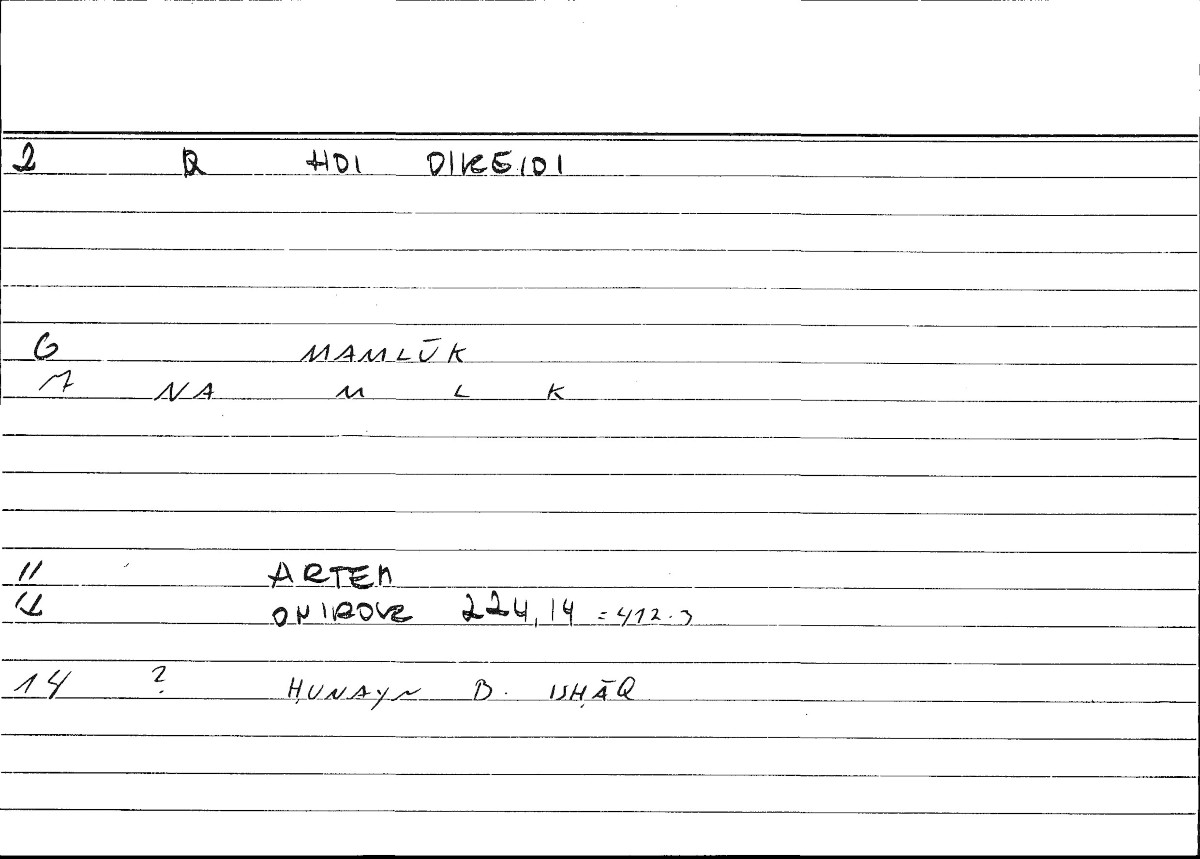 2 R HDI DIKEIDI
6 MAMLŪK
7 NA M L K
11 ARTEM
12 ONIROCR 224,14 = 412.3
14 ? ḤUNAYN B. ISḤĀQ